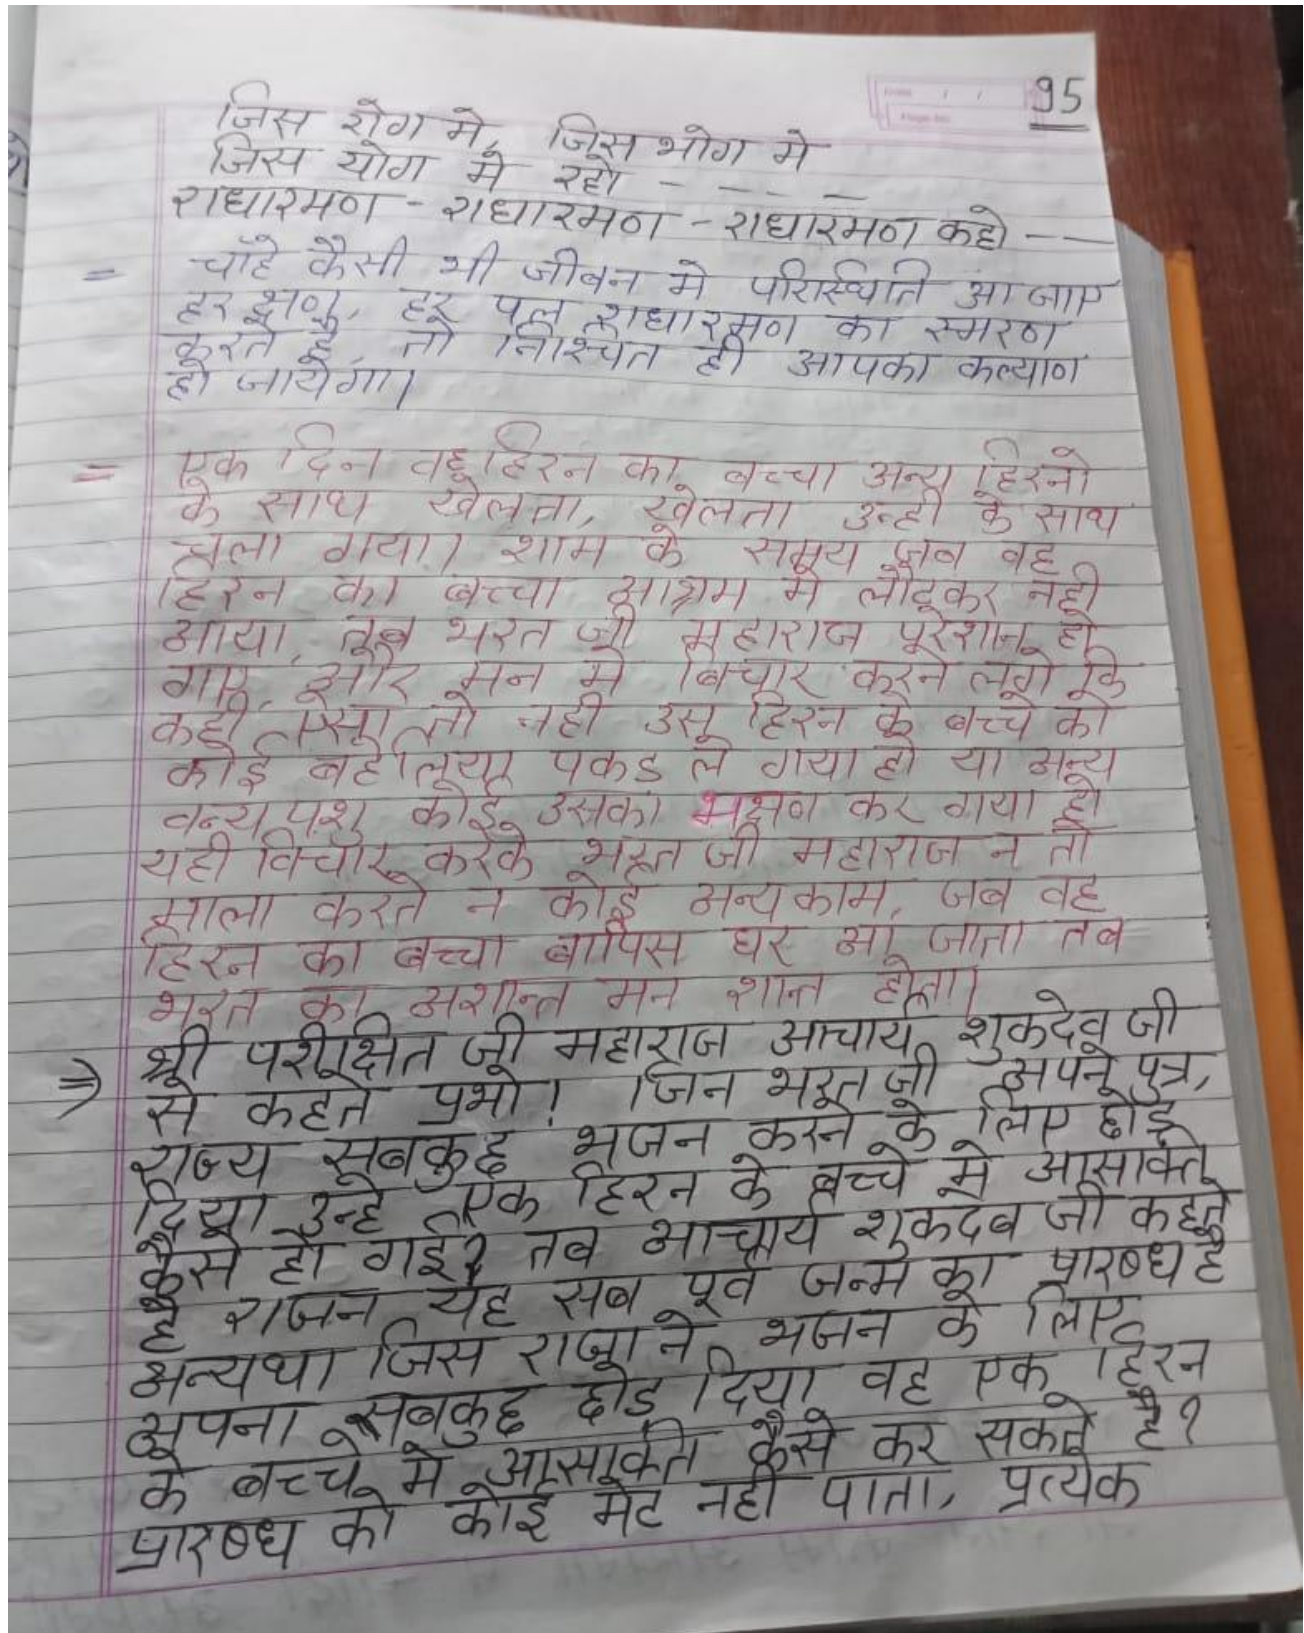 95
जिस रोग मे, जिस भोग मे
जिस योग मे रहो - - - - -
राधारमण - राधारमण - राधारमण कहो - -
= चाँहे कैसी भी जीवन मे परिस्थिति आ जाए
हर क्षण, हर पल राधारमण का स्मरण
करते है, तो निश्चित ही आपका कल्याण
हो जायेगा।
= एक दिन वह हिरन का बच्चा अन्य हिरनो
के साथ खेलता, खेलता उन्ही के साथ
चला गया। शाम के समय जब वह
हिरन का बच्चा आश्रम मे लौटकर नही
आया, तब भरत जी महाराज परेशान हो
गए, और मन मे बिचार करने लगे कि
कही ऐसा तो नही उस हिरन के बच्चे को
कोई बहेलिया पकड ले गया हो या अन्य
वन्य पशु कोई उसका भक्षण कर गया हो
यही विचार करके भरत जी महाराज न तो
माला करते न कोई अन्य काम, जब वह
हिरन का बच्चा बापिस घर आ जाता तब
भरत का अशान्त मन शान्त होता।
⇒ श्री परीक्षित जी महाराज आचार्य शुकदेव जी
से कहते प्रभो! जिन भरत जी अपने पुत्र,
राज्य सबकुछ भजन करने के लिए छोड
दिया उन्हे एक हिरन के बच्चे मे आसक्ति
कैसे हो गई? तब आचार्य शुकदेव जी कहते
है राजन यह सब पूर्व जन्म का प्रारब्ध है
अन्यथा जिस राजा ने भजन के लिए
अपना सबकुछ छोड दिया वह एक हिरन
के बच्चे मे आसक्ति कैसे कर सकते है?
प्रारब्ध को कोई मेट नही पाता, प्रत्येक